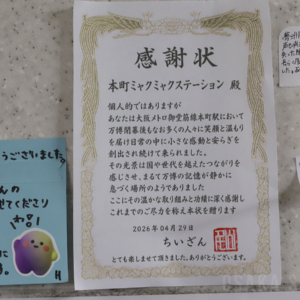 感謝状
本町ミャクミャクステーション 殿
個人的ではありますが
あなたは大阪メトロ御堂筋線本町駅において
万博閉幕後もなお多くの人々に笑顔と温もり
を届け日常の中に小さな感動と安らぎを
創出され続けて来られました。
その光景は国や世代を越えたつながりを
感じさせ、まるで万博の記憶が静かに
息づく場所のようでありました
ここにその温かな取り組みと功績に深く感謝し
これまでのご尽力を称え本状を贈ります
2026年04月29日
ちいざん
とても楽しませて頂きました。ありがとうございます。
うございました
んの
せてくださり
H